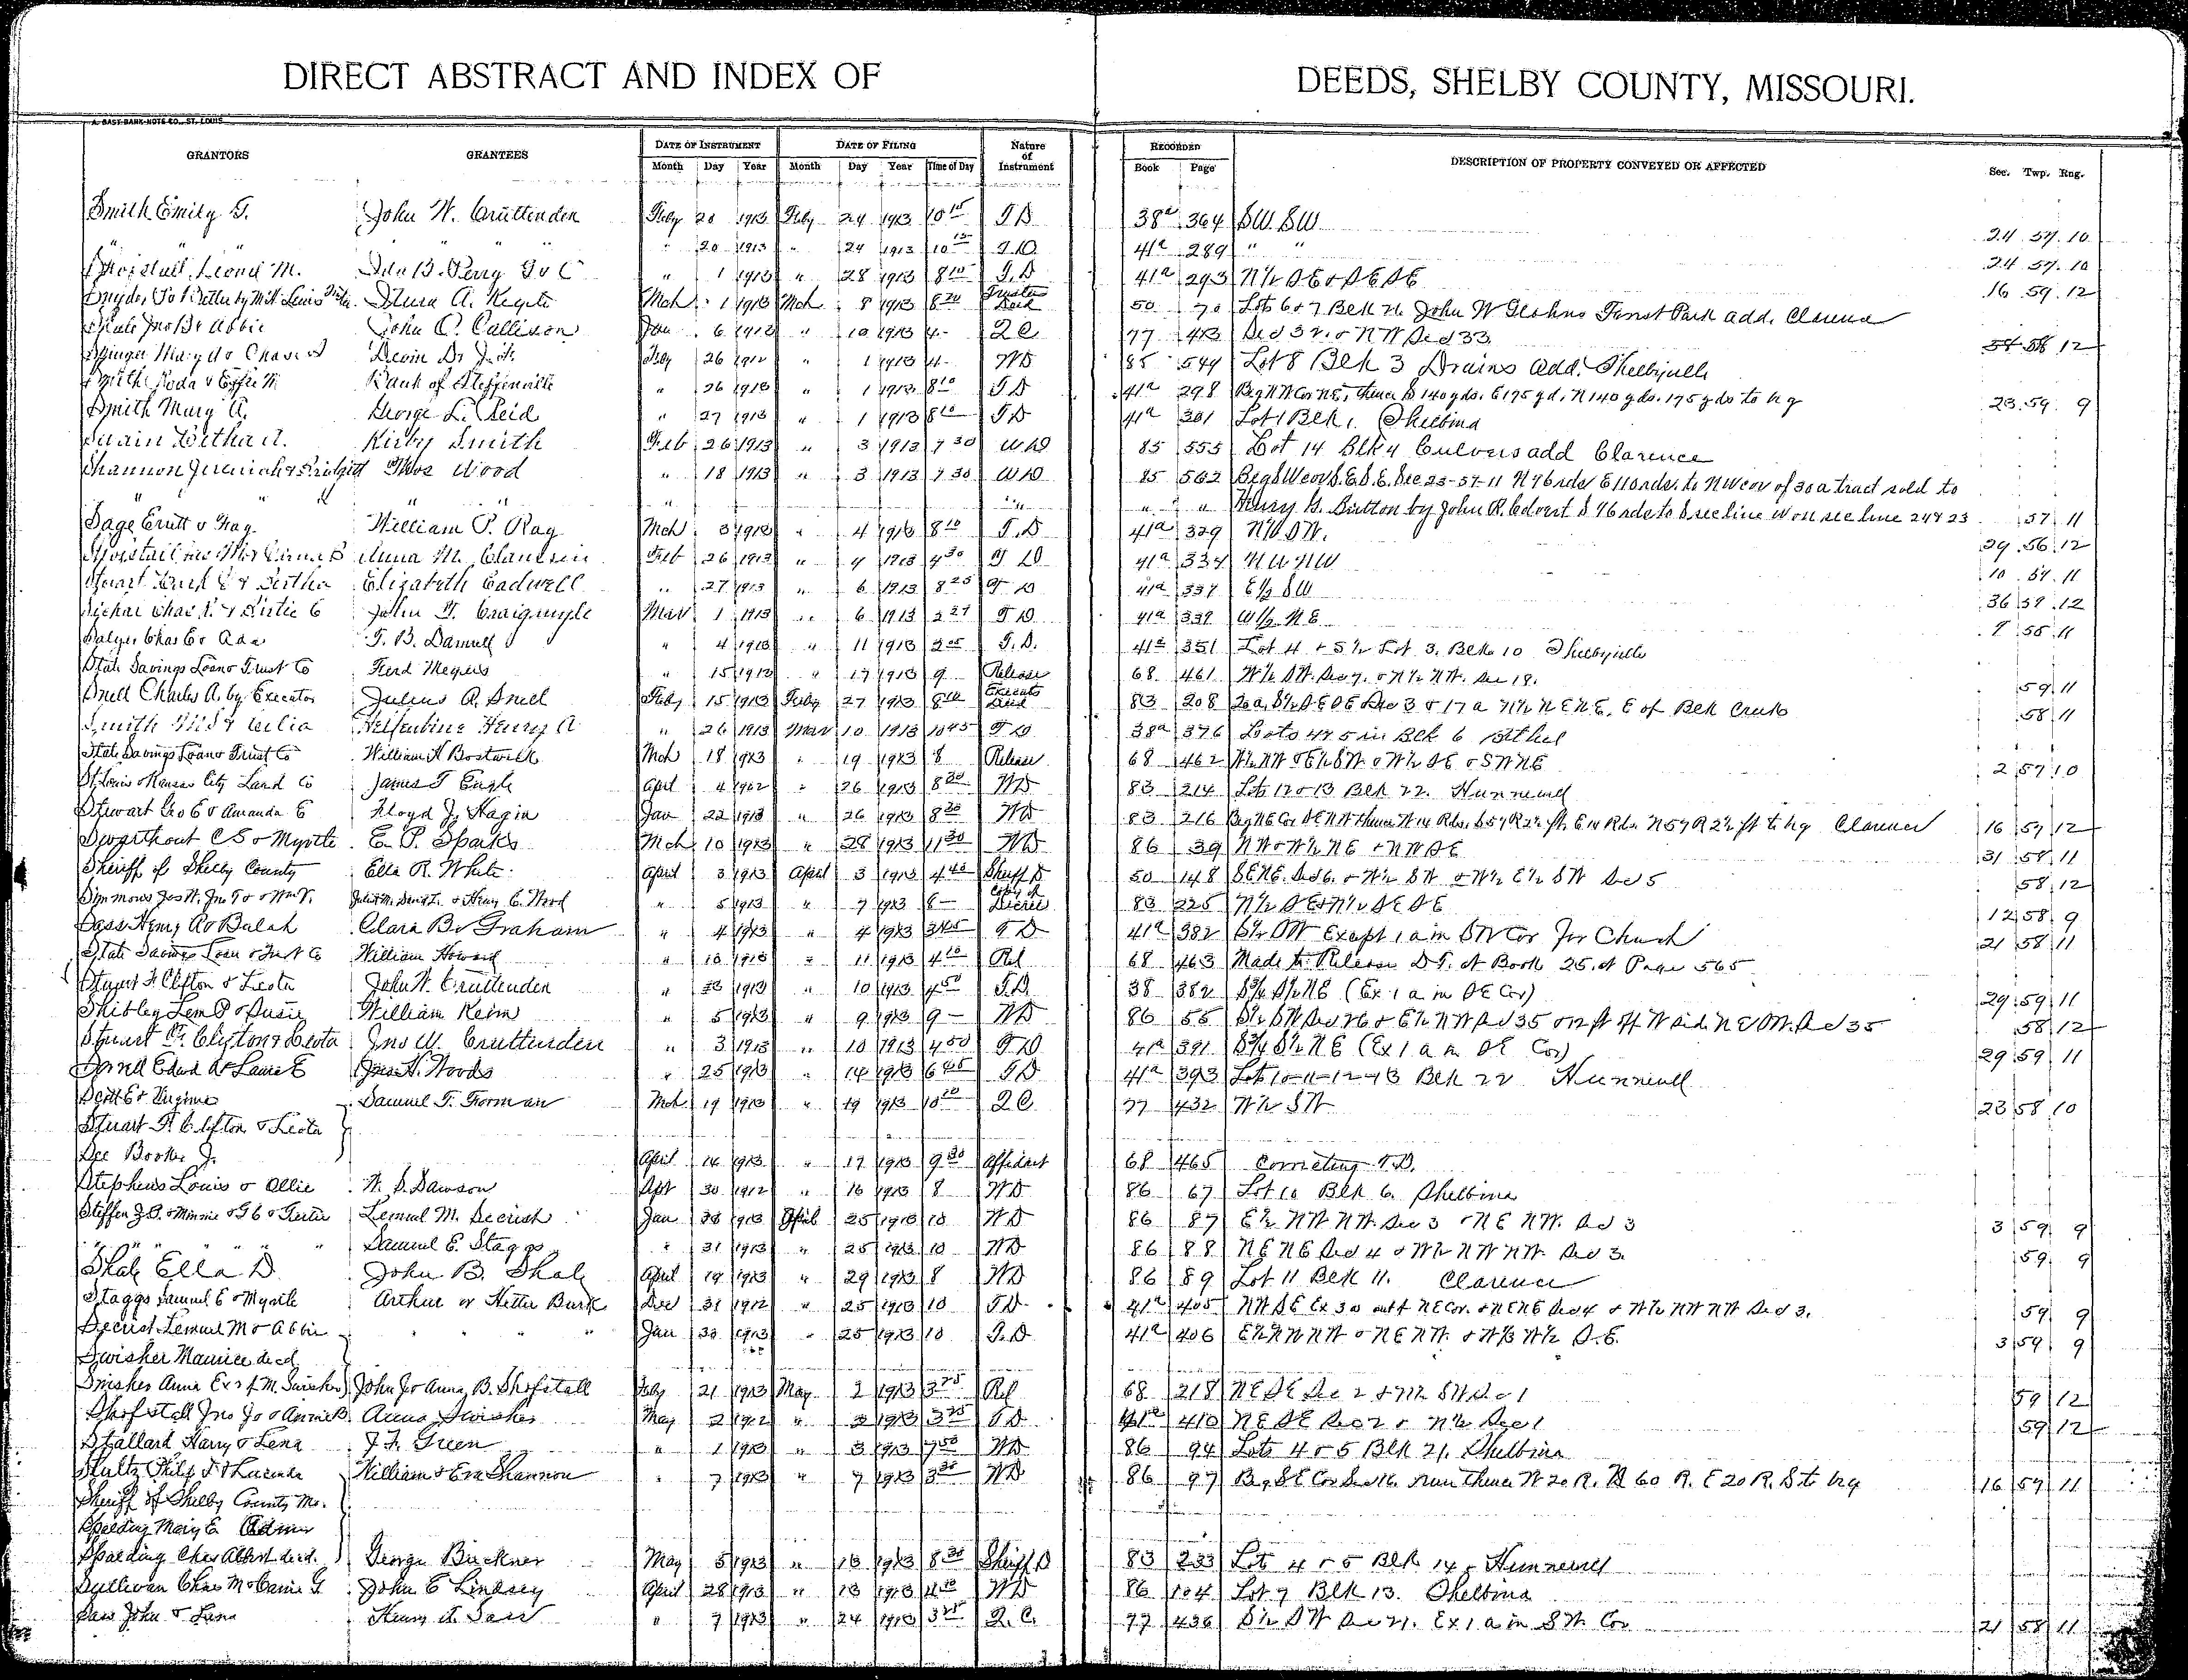 DIRECT ABSTRACT AND INDEX OF DEEDS, SHELBY COUNTY, MISSOURI.
A. GAST BANK NOTE CO., ST. LOUIS
GRANTORS GRANTEES DATE OF INSTRUMENT DATE OF FILING Nature of Instrument RECORDED DESCRIPTION OF PROPERTY CONVEYED OR AFFECTED Sec. Twp. Rng.
Month Day Year Month Day Year Time of Day Book Page
Smith Emily G. John W. Cruttenden Feby 20 1913 Feby 24 1913 10 15 T D 38a 364 SW. SW 24 57 10
" " " " " 20 1913 " 24 1913 10 15 T.D. 41a 289 " " 24 57 10
M. Ida B. Perry " 1 1913 " 28 1913 8 10 T.D 41a 293 N½ SE & SE SE 16 59 12
Mch 1 1913 Mch 8 1913 8 20 Trustees Deed 50 70 Lots 6 & 7 Blk 26 John W Forest Park add. Clarence
Abbie John C. Callison Jan 6 1913 " 10 1913 4- Q C 77 413 Sec 32 & NW Sec 33
Feby 26 " 1 1913 4- WD 85 549 Lot 8 Blk 3 Drains Add. Shelbyville
Smith Roda & Effie M Bank of Steffenville " 26 1913 " 1 1913 8 10 T D 41a 298 Beg NW Cor NE, thence S 140 yds. E 175 yd. N 140 yds. 175 yds to beg 23 59 9
Smith Mary A. George L. Reid " 27 1913 " 1 1913 8 10 T D 41a 301 Lot 1 Blk 1. Shelbina
Swain Bertha A. Kirby Smith Feb 26 1913 " 3 1913 7 30 W D 85 555 Lot 14 Blk 4 Culvers add Clarence
Shannon Jeremiah & Bridgett Thos Wood " 18 1913 " 3 1913 7 30 W D 85 562 Beg SW cor S.E. S.E. Sec 23-57-11 N 76 rds E 110 rds. to NW cor of 30 a tract sold to
" " " " " " " Henry G. Britton by John R. S 76 rds to S sec line W on sec line 24 & 23 57 11
Sage & May. William P. Ray Mch 3 1913 " 4 1913 8 10 T.D 41a 329 N½ SW. 29 56 12
Anna M. Feb 26 1913 " 4 1913 4 30 T D 41a 334 NW NW 10 57 11
Stuart & Bertha Elizabeth Cadwell " 27 1913 " 6 1913 8 25 T D 41a 337 E½ SW 36 59 12
Chas & Dertie John T. Craigmyle Mar 1 1913 " 6 1913 T D 41a 339 W½ NE 9 56 11
Chas E & Ada T. B. Damrell " 4 1913 " 11 1913 3 05 T.D. 41a 351 Lot 4 + S½ Lot 3, Blk 10 Shelbyville
State Savings Loan & Trust Co Ferd Meyers " 15 1913 " 17 1913 9 Release 68 461 W½ SW. Sec 7. & N½ NW. Sec 18. 59 11
Snell Charles A. by Executor Julius A. Snell Feby 15 1913 Feby 27 1913 8 10 Executs Deed 83 208 20 a, S½ SE SE Sec 3 & 17 a N½ NE NE. E of Blk Creek 58 11
Smith & Celia Helfenbine Henry A " 26 1913 Mar 10 1913 10 45 T D 38a 376 Lots 4 & 5 in Blk 6 Bethel
State Savings Loan & Trust Co William H Bostwick Mch 18 1913 " 19 1913 8 Release 68 462 W½ NW & E½ SW & W½ SE & SW NE 2 57 10
St Louis & Kansas City Land Co James T Engle April 4 1902 " 26 1913 8 30 WD 83 214 Lots 12 & 13 Blk 22. Hunnewell
Stewart Geo E & Amanda E Floyd J. Hagin Jan 22 1913 " 26 1913 8 30 WD 83 216 Beg NE Cor SE NW thence W 14 Rds. S 57 R 2½ ft. E 14 Rds. N 57 R 2½ ft to beg Clarence 16 57 12
Swarthout C S & Myrtle E. P. Sparks Mch 10 1913 " 28 1913 11 30 WD 86 39 NW & W½ NE & NW SE 31 58 11
Sheriff of Shelby County Ella R. White April 3 1913 April 3 1913 4 45 Sheriff D 50 148 SE NE. Sec 6. & W½ SW & W½ E½ SW Sec 5 58 12
Simmons Jas W. Jno T. & Wm V. Juliet M. David L. & Henry C. Wood " 5 1913 " 7 1913 8- Copy of Decree 83 225 N½ SE & N½ SE SE 12 58 9
Sass Henry A & Bulah Clara B. Graham " 4 1913 " 4 1913 3 45 T D 41a 382 S½ SW Except 1 a in SW Cor for Church 21 58 11
State Savings Loan & Trust Co William Howard " 10 1913 " 11 1913 4 10 Rel 68 463 Made to Release D.T. at Book 25, at Page 565
Stuart F. Clifton & Leota John W. Cruttenden " 1913 " 10 1913 4 50 T.D. 38 382 S¾ S½ NE (Ex 1 a in SE Cor) 29 59 11
Shibley Lem P & Susie William Keim " 5 1913 " 9 1913 9- WD 86 55 S½ SW Sec 26 & E½ NW Sec 35 & 12 ft off W side Sec 35 58 12
Stuart F. Clifton & Leota Jno W. Cruttenden " 3 1913 " 10 1913 4 50 T D 41a 391 S¾ S½ NE (Ex 1 a in SE Cor) 29 59 11
& Laura E Jas H. Woods " 25 1913 " 14 1913 6 45 T D 41a 393 Lots 10-11-12-13 Blk 22 Hunnewell
Scott E & Virginia Samuel T. Forman Mch 19 1913 " 19 1913 10 20 Q C 77 432 W½ SW 23 58 10
Stuart F. Clifton & Leota
See Booker J. April 14 1913 " 17 1913 9 30 Affidavit 68 465 Correcting T.D.
Stephens Louis & Ollie W. S. Dawson Apr 30 1912 " 16 1913 8 WD 86 67 Lot 10 Blk 6. Shelbina
Steffen J.P. & Minnie & G C & Gertie Lemuel M. Secrist Jan 30 1913 April 25 1913 10 WD 86 87 E½ NW NW Sec 3 & NE NW. Sec 3 3 59 9
" " " " " Samuel E. Staggs " 31 1913 " 25 1913 10 WD 86 88 NE NE Sec 4 & W½ NW NW Sec 3. 59 9
Shale Ella D John B. Shale April 19 1913 " 29 1913 8 WD 86 89 Lot 11 Blk 11. Clarence
Staggs Samuel E & Myrtle Arthur or Hettie Burk Dec 31 1912 " 25 1913 10 T D 41a 405 NW SE Ex 3 a out of NE Cor. & NE NE Sec 4 & W½ NW NW Sec 3. 59 9
Secrist Lemuel M & Abbie " " " Jan 30 1913 " 25 1913 10 T.D 41a 406 E½ NW NW & NE NW & W½ W½ S.E. 3 59 9
Swisher Maurice decd
Swisher Anna Ex of M. Swisher John J & Anna B. Shofstall Feby 21 1913 May 2 1913 3 25 Rel 68 218 NE SE Sec 2 & N½ SW Sec 1 59 12
Shofstall Jno J & Anna B. Anna Swisher May 2 1912 " 2 1913 3 25 T D 41a 410 NE SE Sec 2 & N½ Sec 1 59 12
Stallard Harry & Lena J. F. Green " 1 1913 " 3 1913 7 50 WD 86 94 Lots 4 & 5 Blk 21. Shelbina
Stultz Philip T. & Lucinda William & Eva Shannon " 7 1913 " 7 1913 3 30 WD 86 97 Beg SE Cor Sec 16. run thence W 20 R. N 60 R. E 20 R. S to beg 16 57 11
Sheriff of Shelby County Mo.
Spalding Mary E. Admx
Spalding Chas Albert decd. George Buckner May 5 1913 " 13 1913 8 30 Sheriff D 83 233 Lots 4 & 5 Blk 14 Hunnewell
Sullivan Chas M & Carrie G John E Lindsey April 28 1913 " 13 1913 WD 86 104 Lot 7 Blk 13. Shelbina
Sass John & Lena Henry A Sass " 7 1913 " 24 1913 3 25 Q. C. 77 436 S½ SW Sec 21. Ex 1 a in SW Cor 21 58 11